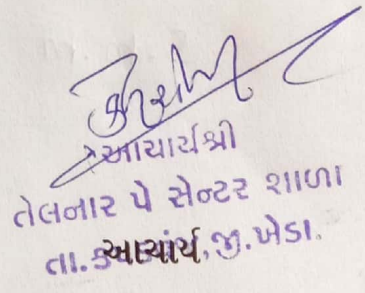 આચાર્યશ્રી
તેલનાર પે સેન્ટર શાળા
તા. આચાર્ય, જી.ખેડા.